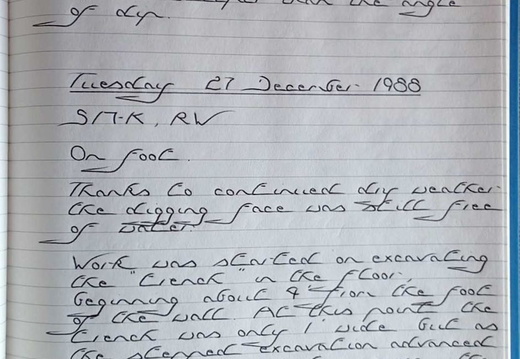 with the angle
of dip.
Tuesday 27 December 1988
On foot.
Thanks to continued dry weather
the digging face was still free
of water.
Work was started on excavating
the "trench" in the floor,
beginning about 4' from the foot
of the wall. At this point the
trench was only 1' wide but as
the stepped excavation advanced